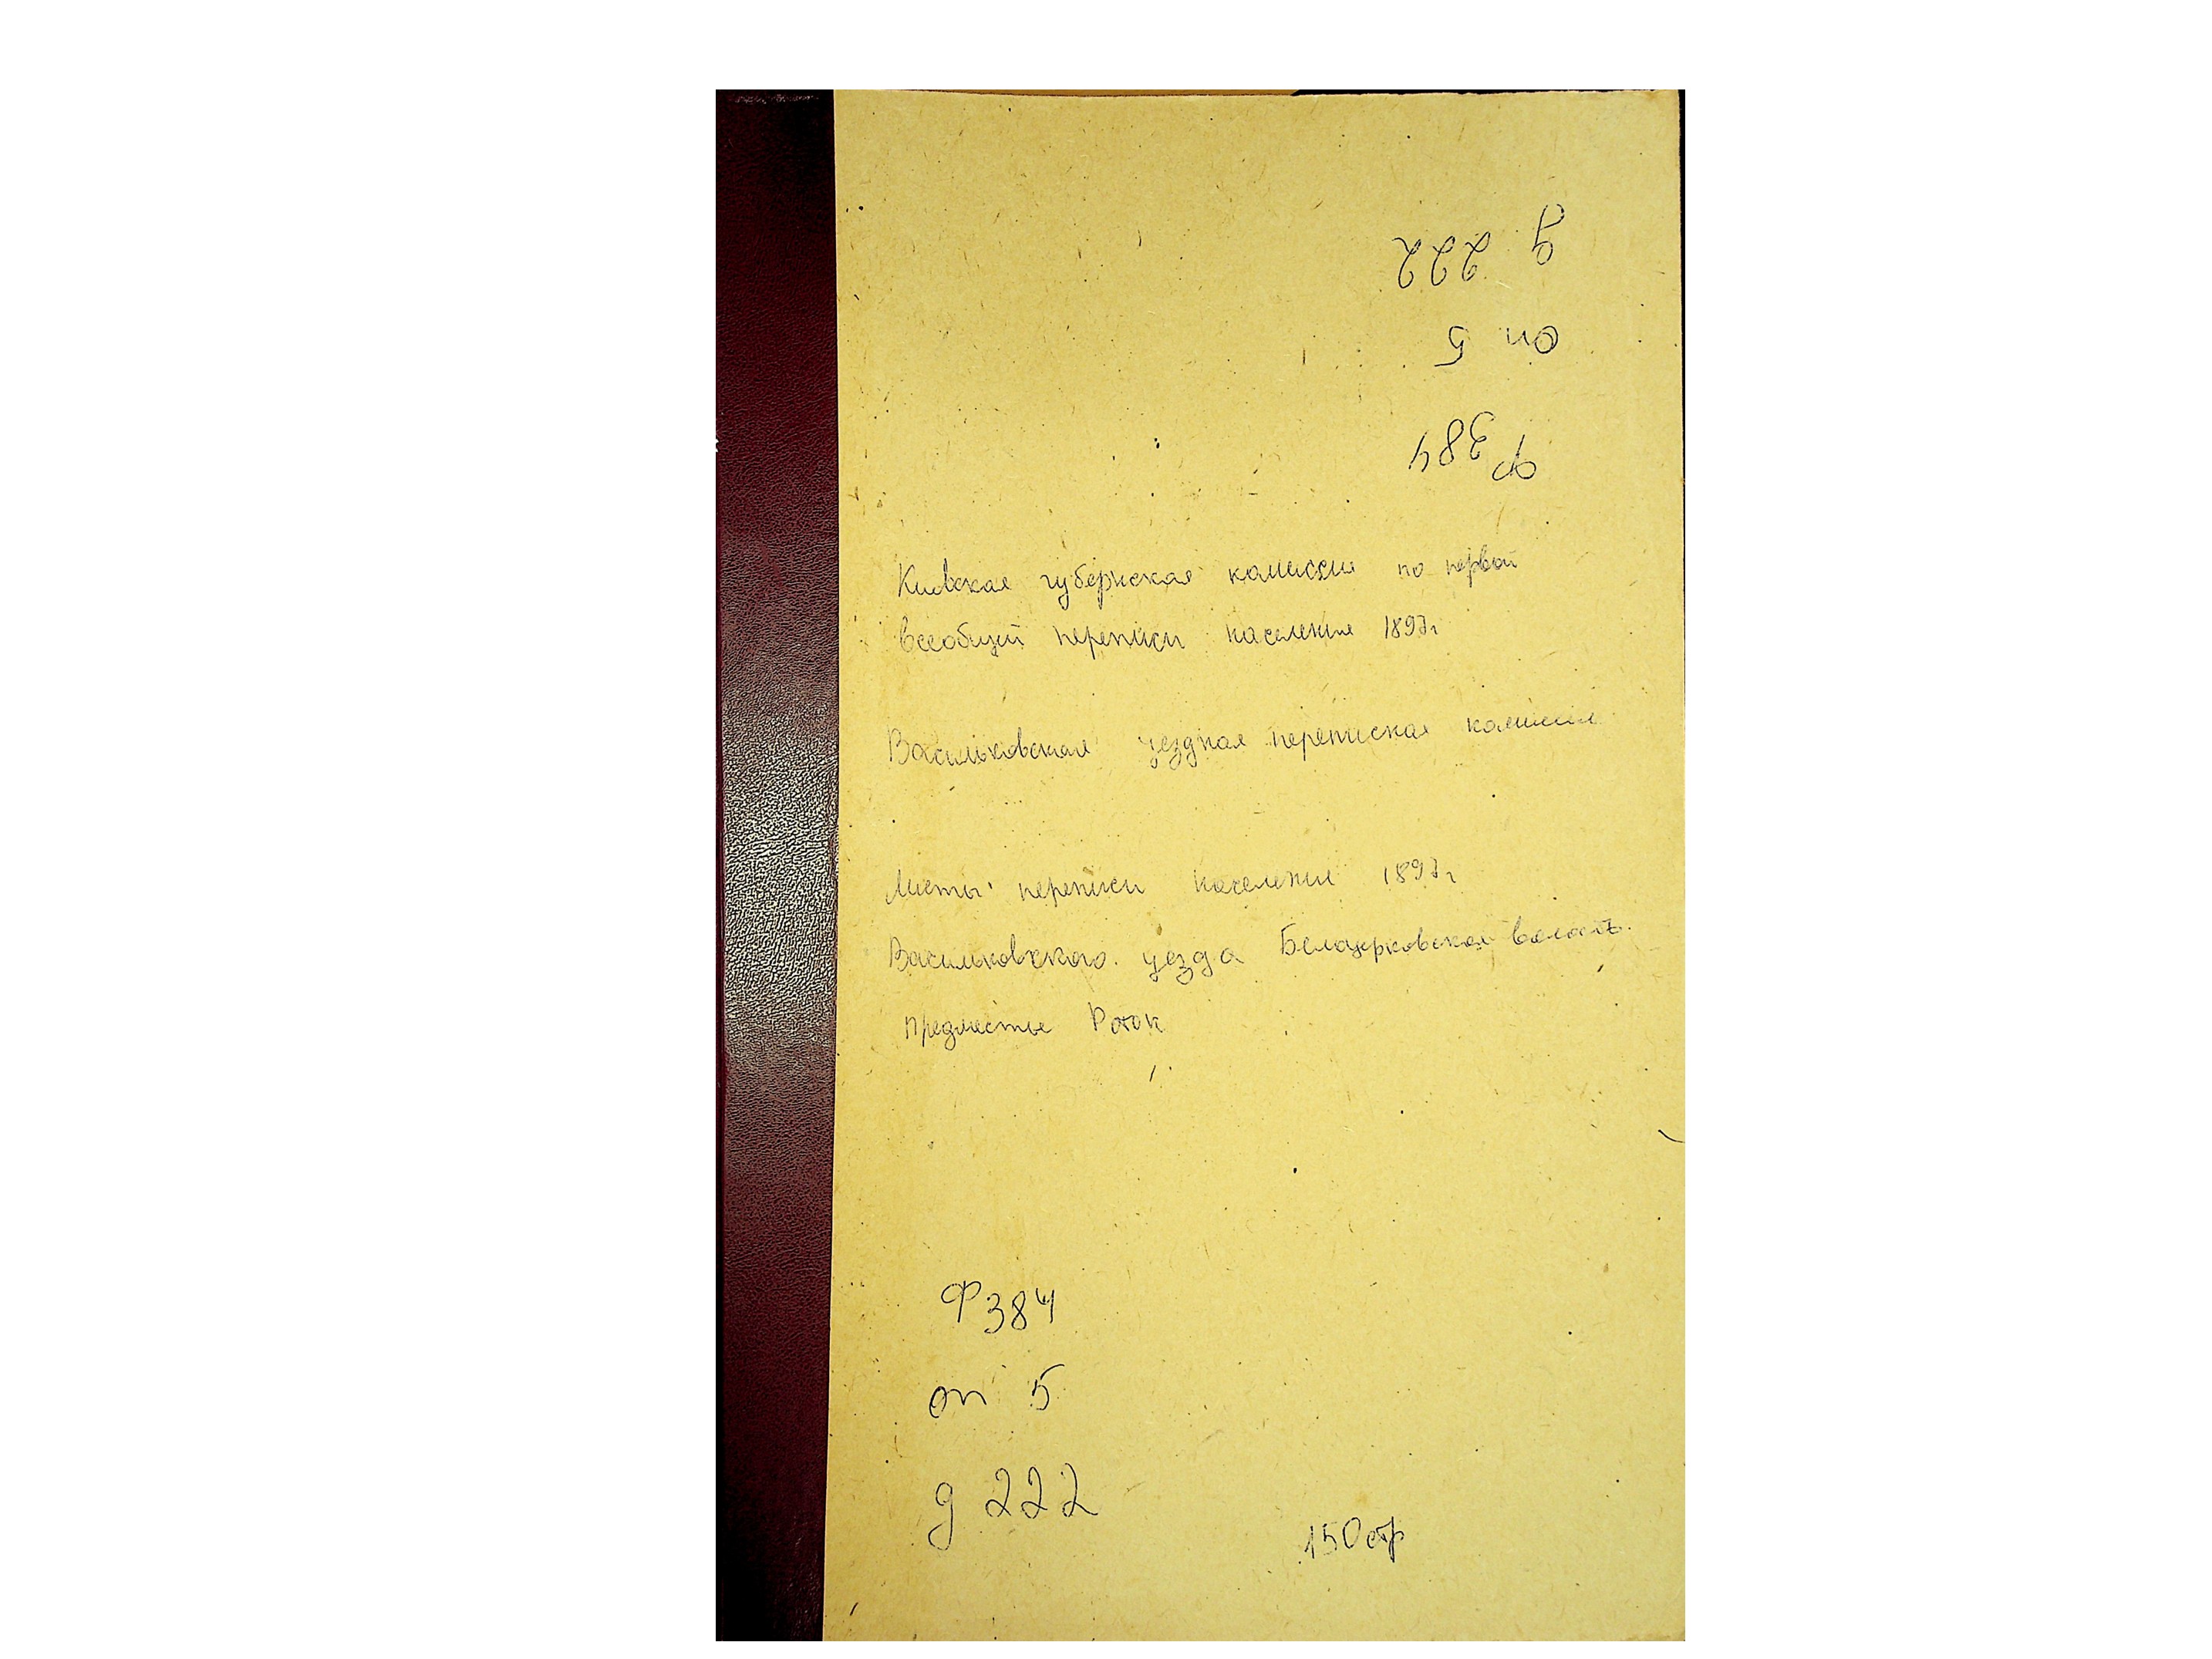 д 222
оп 5
Ф 384
Киевская губернская комиссия по первой
всеобщей переписи населения 1897г
Васильковская уездная переписная комиссия
Листы переписи населения 1897г
Васильковского уезда Белоцерковская волость.
предместье Роток
Ф 384
оп 5
д 222
150 стр